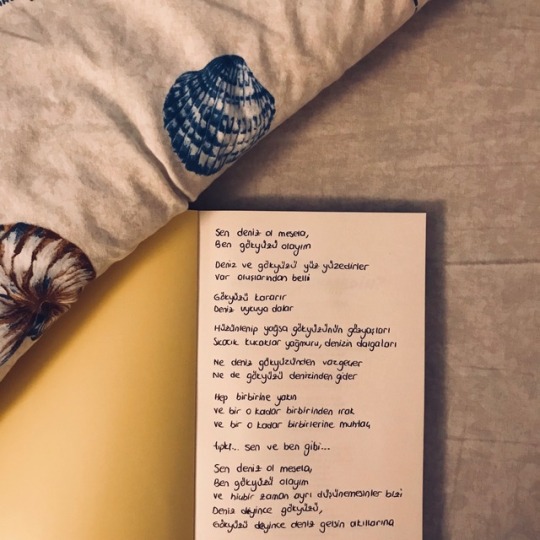 Sen deniz ol mesela,
Ben gökyüzü olayım
Deniz ve gökyüzü yüz yüzedirler
Var oluşlarından belli
Gökyüzü kararır
Deniz uykuya dalar
Hüzünlenip yağsa gökyüzünün gözyaşları
Sıcacık kucaklar yağmuru, denizin dalgaları
Ne deniz gökyüzünden vazgeçer
Ne de gökyüzü denizinden gider
Hep birbirine yakın
ve bir o kadar birbirinden ırak
ve bir o kadar birbirlerine muhtaç
tıpkı... sen ve ben gibi...
Sen deniz ol mesela,
Ben gökyüzü olayım
ve hiçbir zaman ayrı düşünemesinler bizi
Deniz deyince gökyüzü,
Gökyüzü deyince deniz gelsin akıllarına